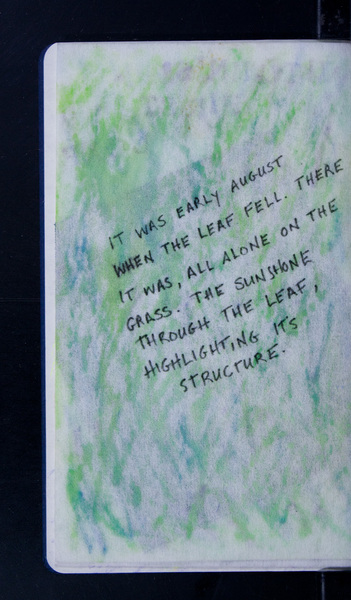 IT WAS EARLY AUGUST
WHEN THE LEAF FELL. THERE
IT WAS, ALL ALONE ON THE
GRASS. THE SUNSHONE
THROUGH THE LEAF,
HIGHLIGHTING IT'S
STRUCTURE.